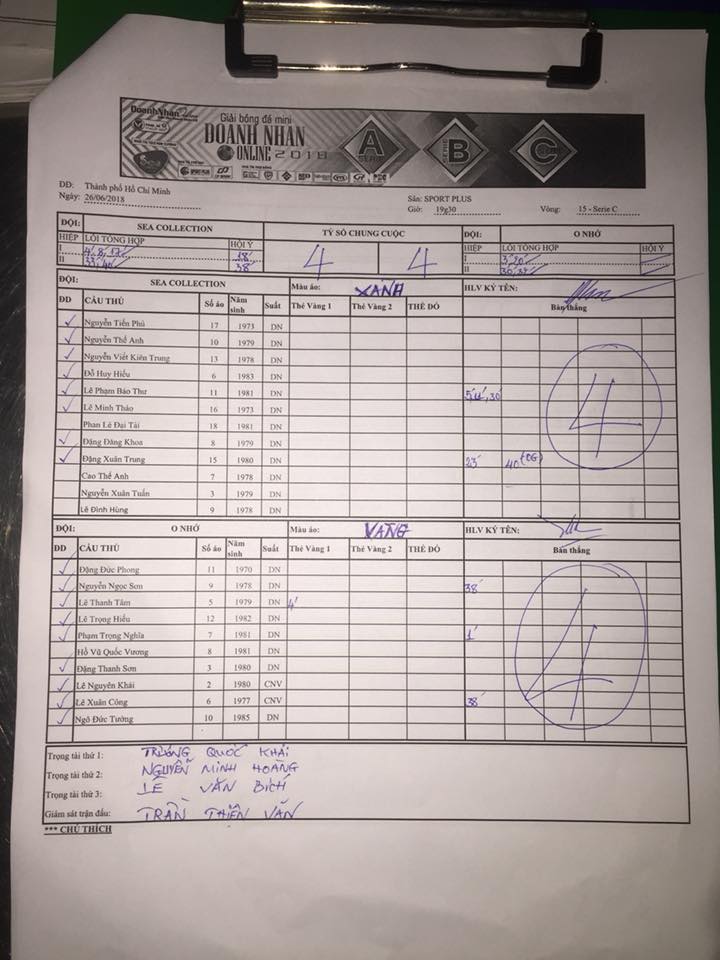 DoanhNhan
Giải bóng đá mini
DOANH NHAN
ONLINE 2018
A
SERIE
B
SERIE
C
SERIE
DD: Thành phố Hồ Chí Minh
Ngày: 26/06/2018
Sân: SPORT PLUS
Giờ: 19g30 Vòng: 15 - Serie C
ĐỘI: SEA COLLECTION TỶ SỐ CHUNG CUỘC ĐỘI: O NHỚ
HIỆP LỖI TỔNG HỢP HỘI Ý 4 4 HIỆP LỖI TỔNG HỢP HỘI Ý
I 4', 8', 17' 18' I 3', 20'
II 33', 40' 38' II
ĐỘI: SEA COLLECTION Màu áo: XANH HLV KÝ TÊN:
ĐD CẦU THỦ Số áo Năm sinh Suất Thẻ Vàng 1 Thẻ Vàng 2 THẺ ĐỎ Bàn thắng
Nguyễn Tiến Phú 17 1973 DN
Nguyễn Thế Anh 10 1979 DN
Nguyễn Viết Kiên Trung 13 1978 DN
Đỗ Huy Hiếu 6 1983 DN
Lê Phạm Bảo Thư 11 1981 DN
Lê Minh Thảo 16 1973 DN
Phan Lê Đại Tài 18 1981 DN
Đặng Đăng Khoa 8 1979 DN
Đặng Xuân Trung 15 1980 DN 23' 40' (OG)
Cao Thế Anh 7 1978 DN
Nguyễn Xuân Tuấn 3 1979 DN
Lê Đình Hùng 9 1978 DN
4
ĐỘI: O NHỚ Màu áo: VÀNG HLV KÝ TÊN:
ĐD CẦU THỦ Số áo Năm sinh Suất Thẻ Vàng 1 Thẻ Vàng 2 THẺ ĐỎ Bàn thắng
Đặng Đức Phong 11 1970 DN
Nguyễn Ngọc Sơn 9 1978 DN 38'
Lê Thanh Tâm 5 1979 DN 4'
Lê Trọng Hiếu 12 1982 DN
Phạm Trọng Nghĩa 7 1981 DN 1'
Hồ Vũ Quốc Vương 8 1981 DN
Đặng Thanh Sơn 3 1980 DN
Lê Nguyên Khải 2 1980 CNV
Lê Xuân Công 6 1977 CNV 38'
Ngô Đức Tường 10 1985 DN
4
Trọng tài thứ 1: TRƯƠNG QUỐC KHẢI
Trọng tài thứ 2: NGUYỄN MINH HOÀNG
Trọng tài thứ 3: LÊ VĂN BÍCH
Giám sát trận đấu: TRẦN THIÊN VĂN
*** CHÚ THÍCH